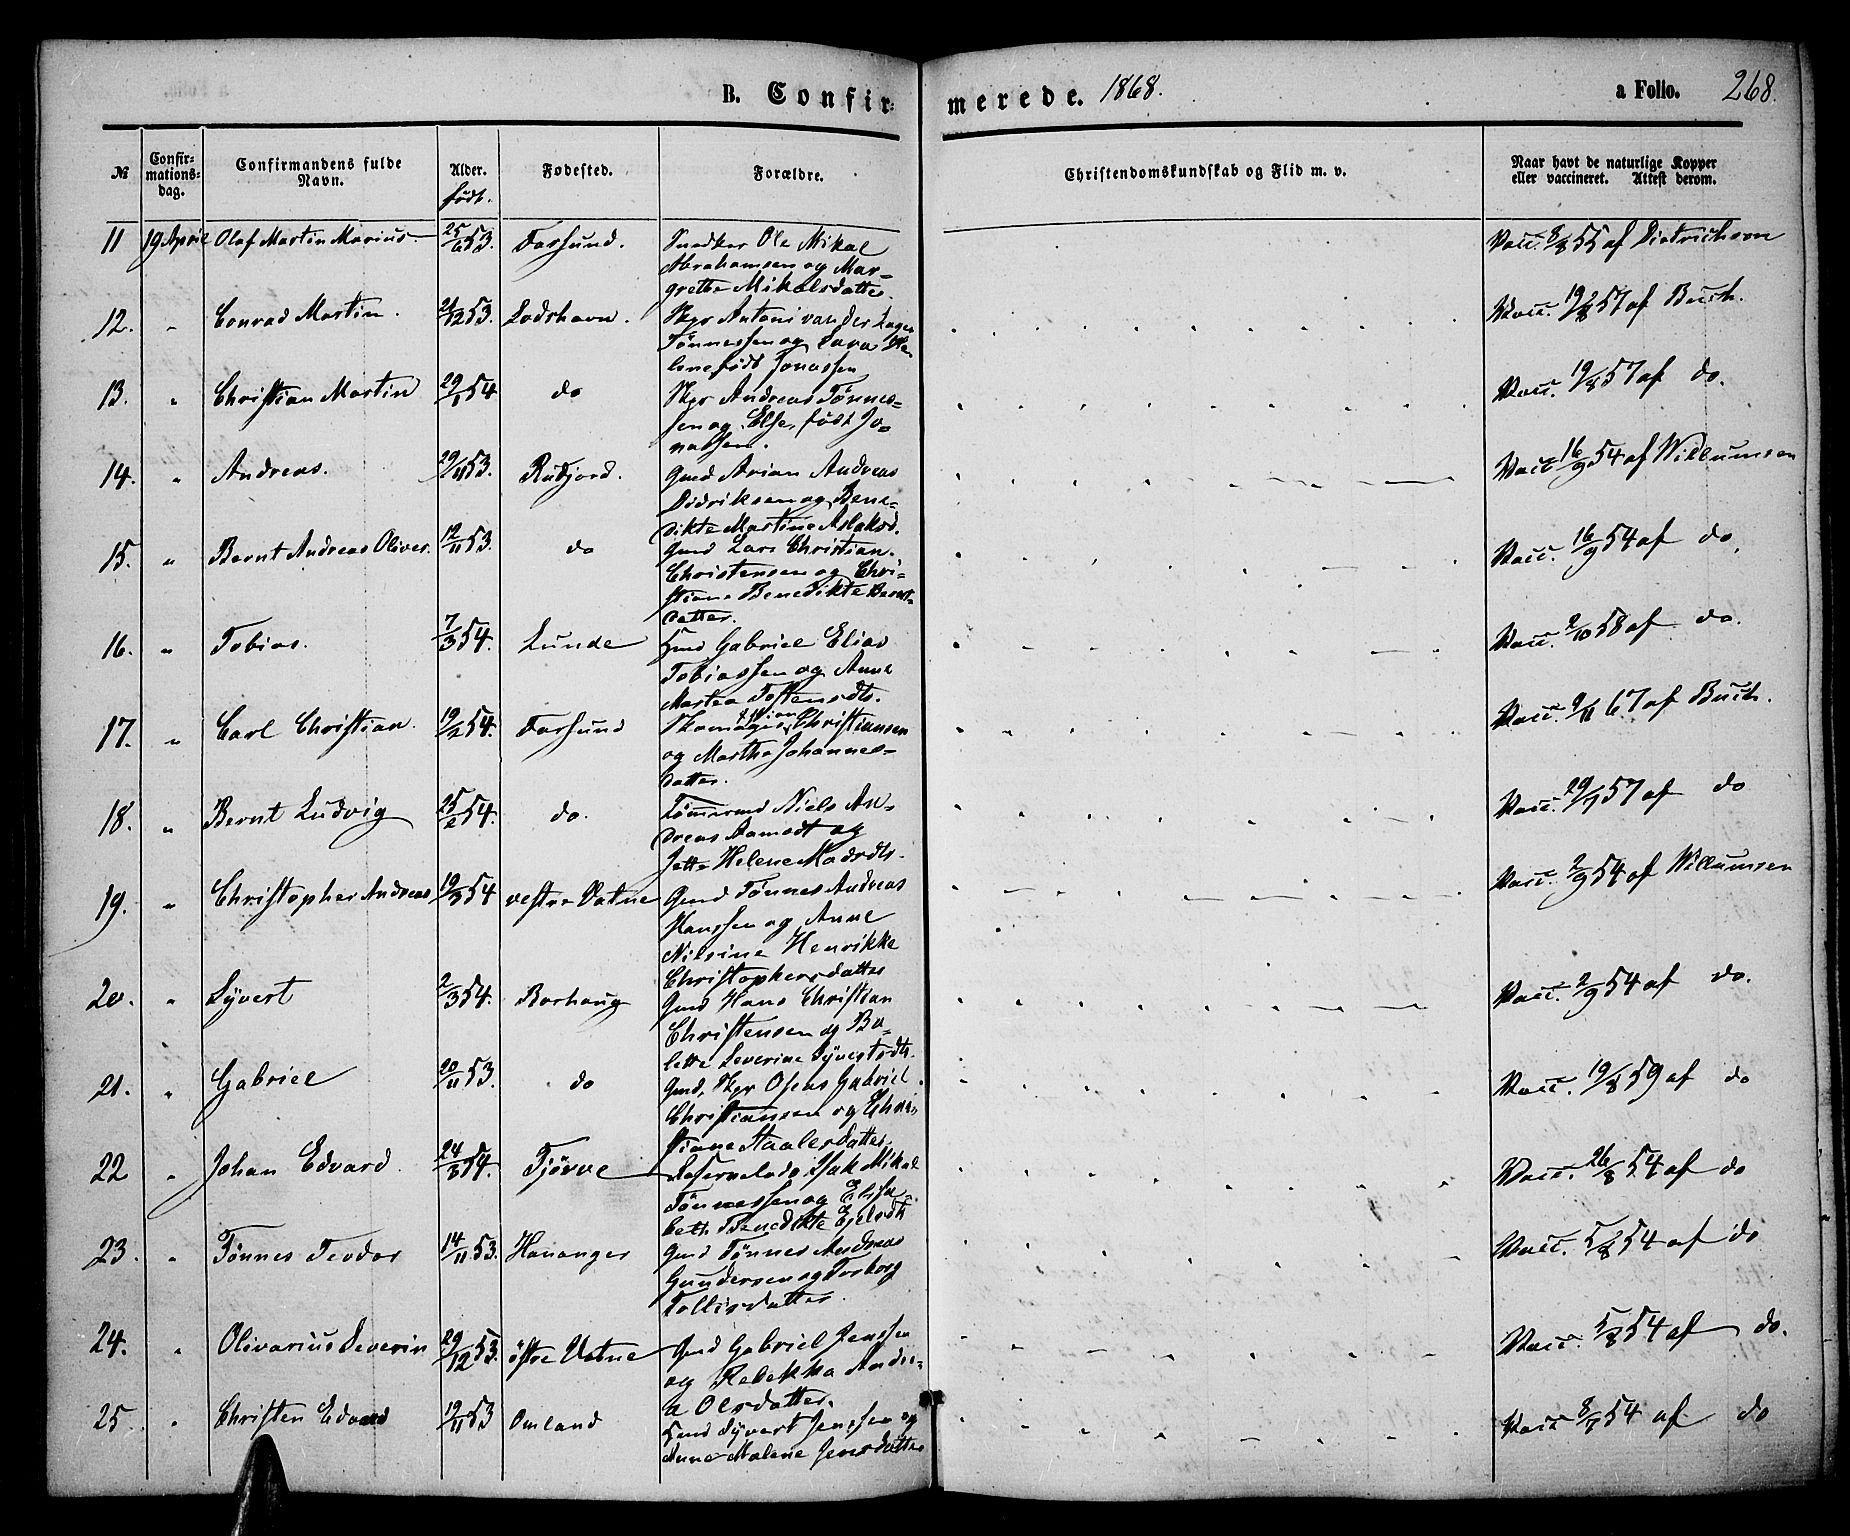 B. Confir-
merede. 1868.
a Folio. 268.
№
Confir-
mations-
dag.
Confirmandens fulde
Navn.
Alder.
født.
Fødested.
Forældre.
Christendomskundskab og Flid m. v.
Naar havt de naturlige Kopper
eller vaccineret. Attest derom.
11 19 April Olaf Martin Marius 25/6 53. Farsund. Snedker Ole Mikal
Abrahamsen og Mar-
grethe Mikalsdatter.
Vacc. 8/8 55 af Dietrichson
12. " Conrad Martin. 21/12 53. Lodshavn. Skpr Antoni van der Lagen
Tønnessen og Lava He-
lene født Jonassen
Vacc. 19/8 57 af Buch.
13. " Christian Martin 29/1 54 do Skpr Andreas Tønnes-
sen og Else, født Jo-
nassen.
Vacc. 19/8 57 af do.
14. " Andreas. 29/11 53. Rudjord. Gmd Arian Andreas
Didriksen og Bene-
dikte Martine Aslaksd.
Vacc 16/9 54 af Willumsen
15. " Bernt Andreas Oliver. 12/11 53. do Gmd Lars Christian
Christensen og Chri-
stiane Benedikte Bernt-
datter.
Vacc. 16/9 54 af do.
16. " Tobias. 7/3 54. Lunde Hmd Gabriel Elias
Tobiassen og Anne
Martea Tostensdtr.
Vacc. 2/10 58 af do.
17. " Carl Christian. 19/2 54. Farsund Skomager Christiansen
og Martha Johannes-
datter.
Vacc. 9/11 67 af Buch.
18. " Bernt Ludvig 25/2 54. do. Tømmermd Niels An-
dreas Aamodt og
Jette Helene Madsdtr.
Vacc. 29/7 57 af do
19. " Christopher Andreas 19/3 54 vestre Vatne Gmd Tønnes Andreas
Hanssen og Anne
Nilsine Henrikke
Christophersdatter
Vacc. 2/9 54 af Willumsen
20. " Syvert 2/3 54. Borhaug Gmd Hans Christian
Christensen og Bo-
lette Severine Syvertsdtr.
Vacc. 2/9 54 af do.
21. " Gabriel 20/11 53. do Gmd, Skpr Oseas Gabriel
Christiansen og Chri-
stiane Staalesdatter.
Vacc. 19/8 59 af do
22 " Johan Edvard. 24/3 54. Tjørve Reservelods Isak Mikal
Tønnessen og Elisa-
beth Benedikte Ejelsdtr
Vacc. 26/8 54 af do
23. " Tønnes Teodor 14/11 53. Hananger Gmd Tønnes Andreas
Gundersen og Torborg
Tollisdatter.
Vacc. 5/8 54 af do
24. " Olivarius Severin 29/12 53. østre Vatne Gmd Gabriel Jenssen
og Rebekka Andre-
a Olsdatter.
Vacc. 5/8 54 af do.
25. " Christen Edvard 19/11 53 Omland Hmd Syvert Jenssen og
Anne Malene Jensdatter
Vacc 8/7 54 af do